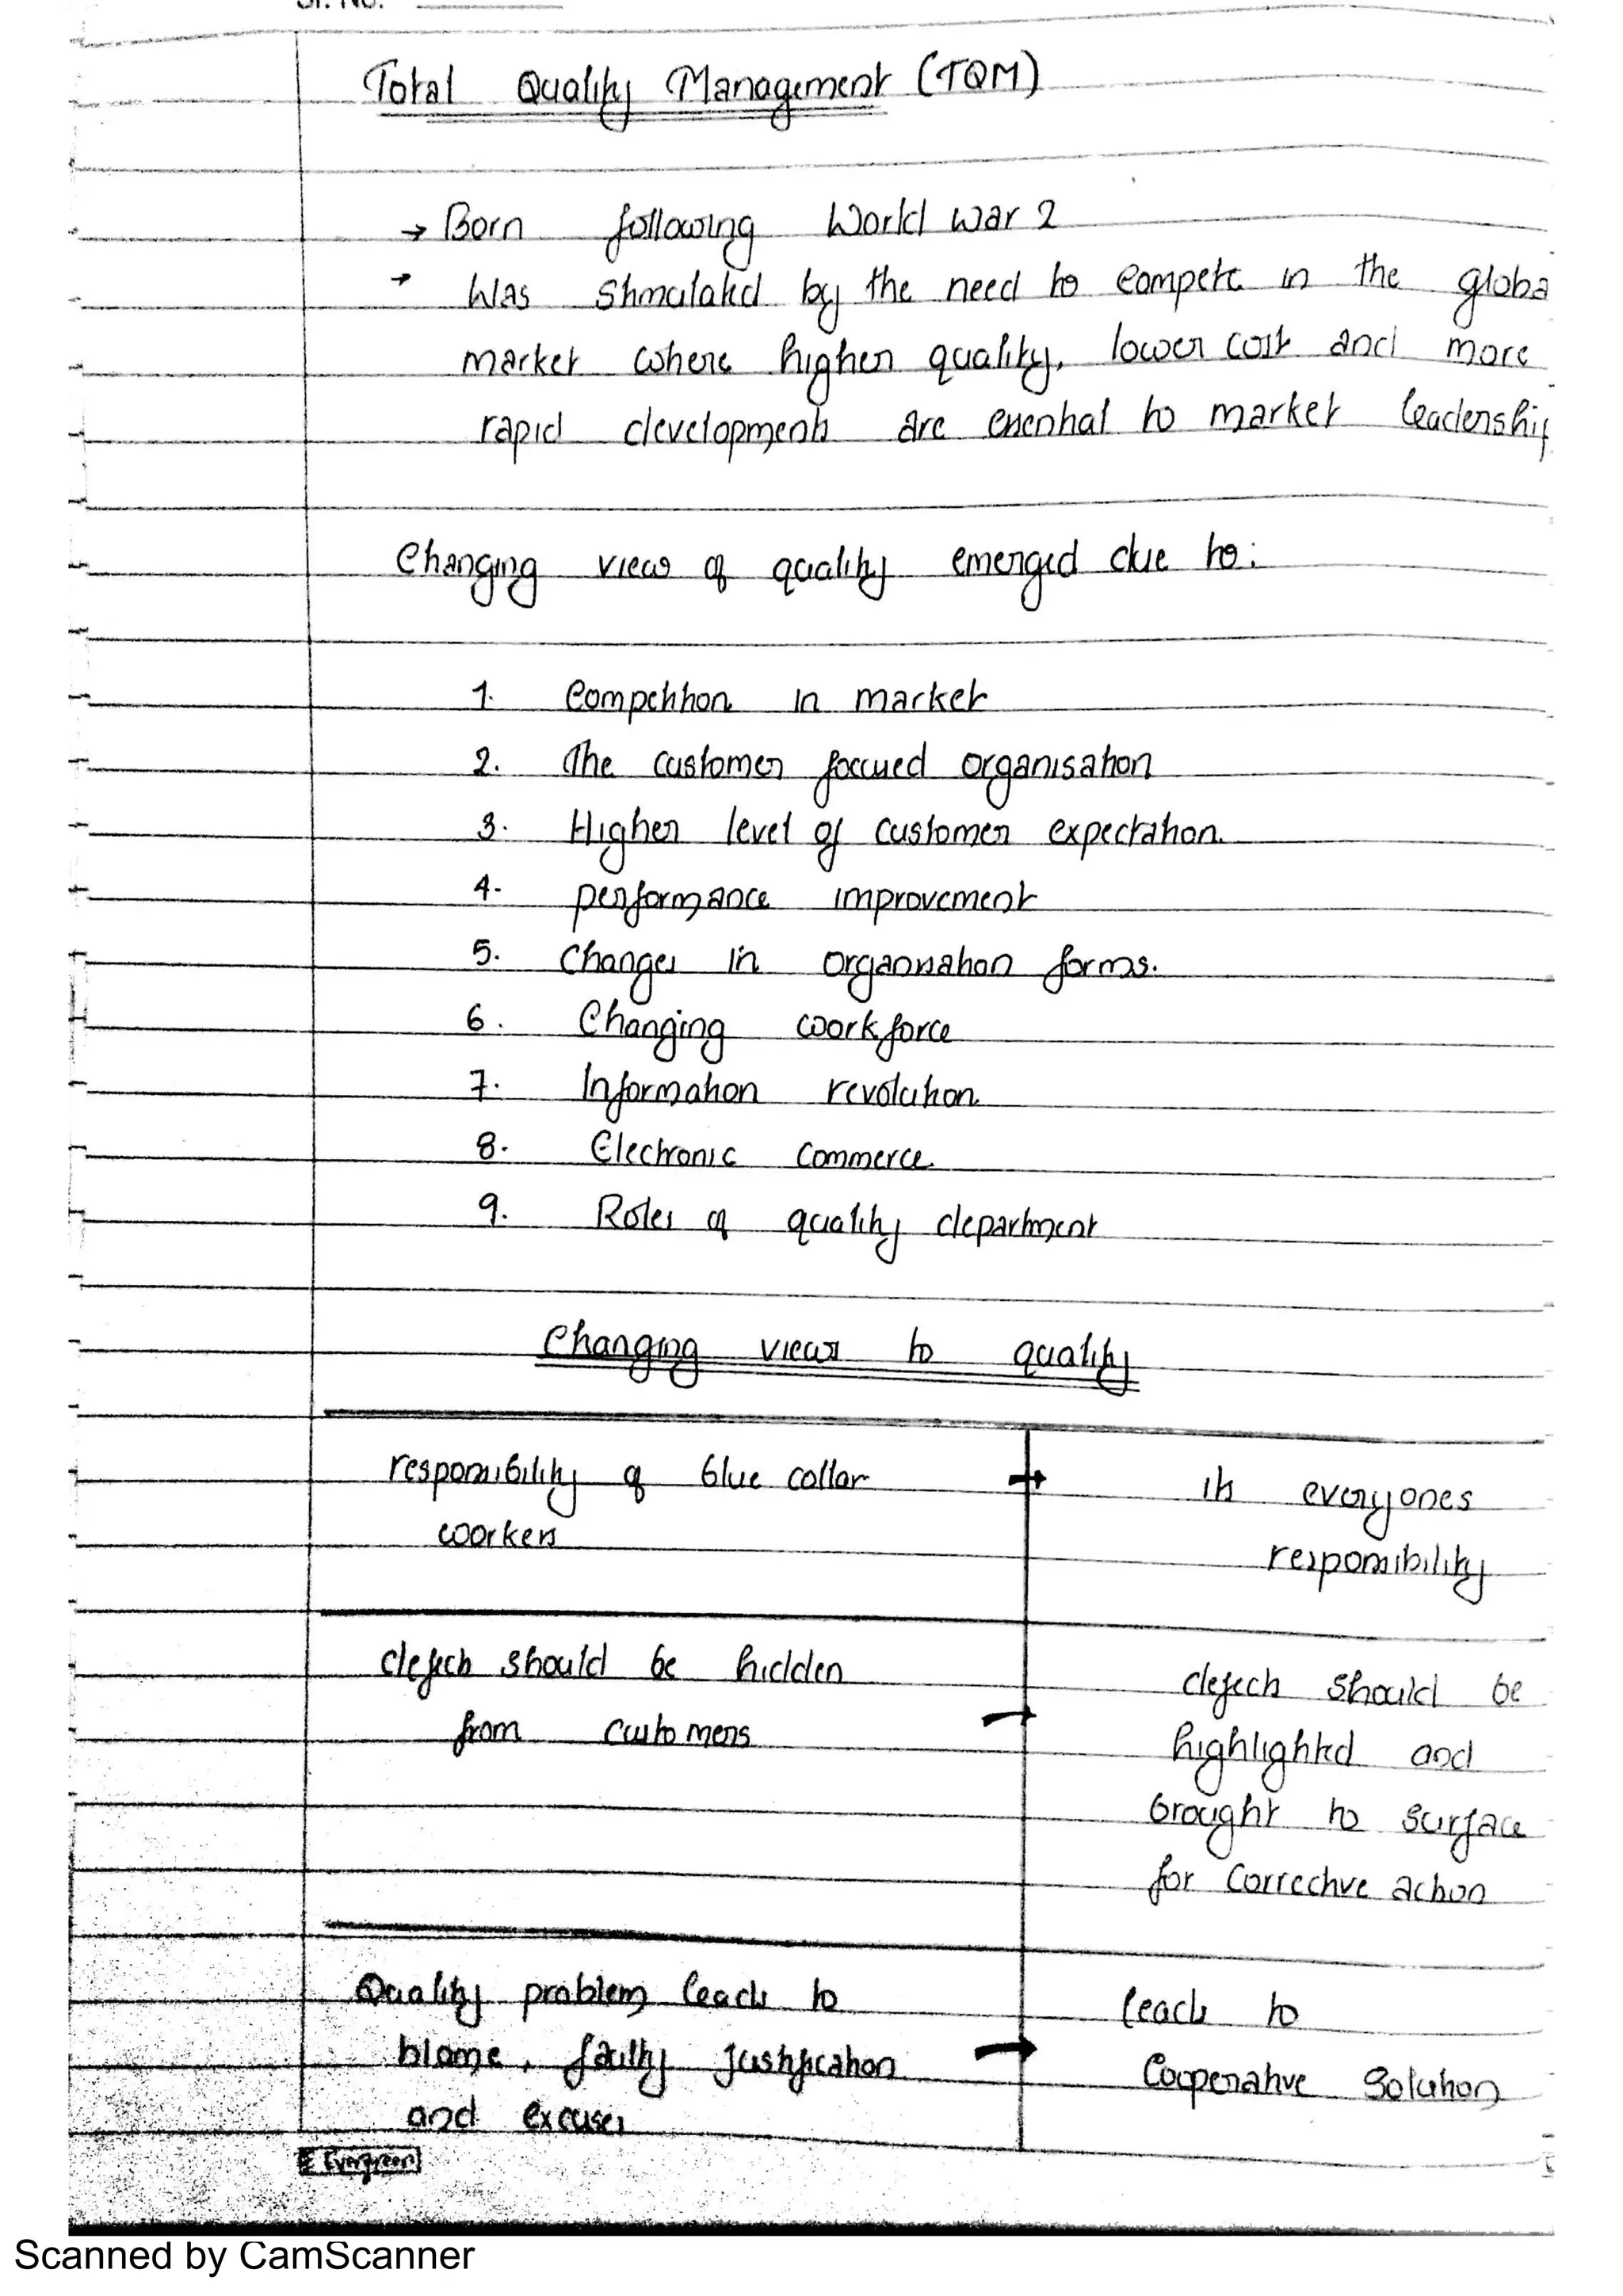 Sr. No.
Total Quality Management (TQM)
→ Born following World War 2
→ Was stimulated by the need to compete in the globa
market where higher quality, lower cost and more
rapid developments are essential to market leadership
Changing view of quality emerged due to:
1. Competition in market
2. The customer focused organisation
3. Higher level of customer expectation.
4. performance improvement
5. Changes in organisation forms.
6. Changing workforce
7. Information revolution
8. Electronic Commerce.
9. Roles of quality department
Changing views to quality
responsibility of blue collar → its everyones
workers responsibility
defects should be hidden defects should be
from customers → highlighted and
brought to surface
for corrective action
Quality problem leads to leads to
blame, faulty justification → Cooperative Solution
and excuses
Evergreen
Scanned by CamScanner